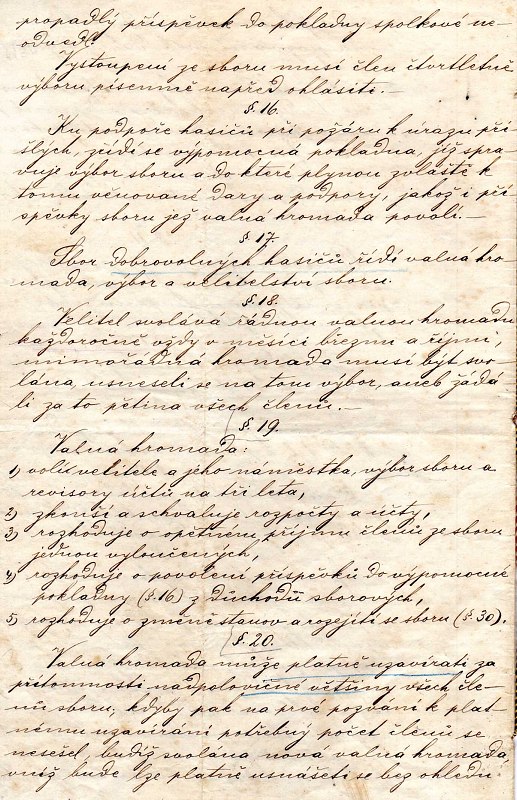 propadlý příspěvek do pokladny spolkové ne-
odvedl.
Vystoupení ze sboru musí člen čtvrtletně
výboru písemně napřed ohlásiti.—
§. 16.
Ku podpoře hasičů při požáru k úrazu při
šlých, zřídí se výpomocná pokladna, již spra-
vuje výbor sboru a do které plynou zvláště k
tomu věnované dary a podpory, jakož i pří
spěvky sboru jež valná hromada povolí.—
§ 17.
Sbor dobrovolných hasičů řídí valná hro-
mada, výbor a velitelství sboru.
§. 18.
Velitel svolává řádnou valnou hromadu
každoročně vždy v měsíci březnu a říjnu,
mimořádná hromada musí být svo
lána, usneselí se na tom výbor, aneb žádá
li za to pětina všech členů.—
§. 19.
Valná hromada:
1) volí velitele a jeho náměstka, výbor sboru a
revisory účtů na tři leta,
2) zkouší a schvaluje rozpočty a účty,
3) rozhoduje o opětném příjmu členů ze sboru
jednou vyloučených,
4) rozhoduje o povolení příspěvků do výpomocné
pokladny (§. 16) z důchodů sborových,
5) rozhoduje o změně stanov a rozejití se sboru (§. 30).
§. 20.
Valná hromada může platně uzavírati za
přítomnosti nadpolovičné většiny všech čle-
nů sboru; kdyby pak na prvé pozvání k plat
nému uzavírání potřebný počet členů se
nesešel, budiž svolána nová valná hromada,
v níž bude lze platně usnášeti se bez ohledu